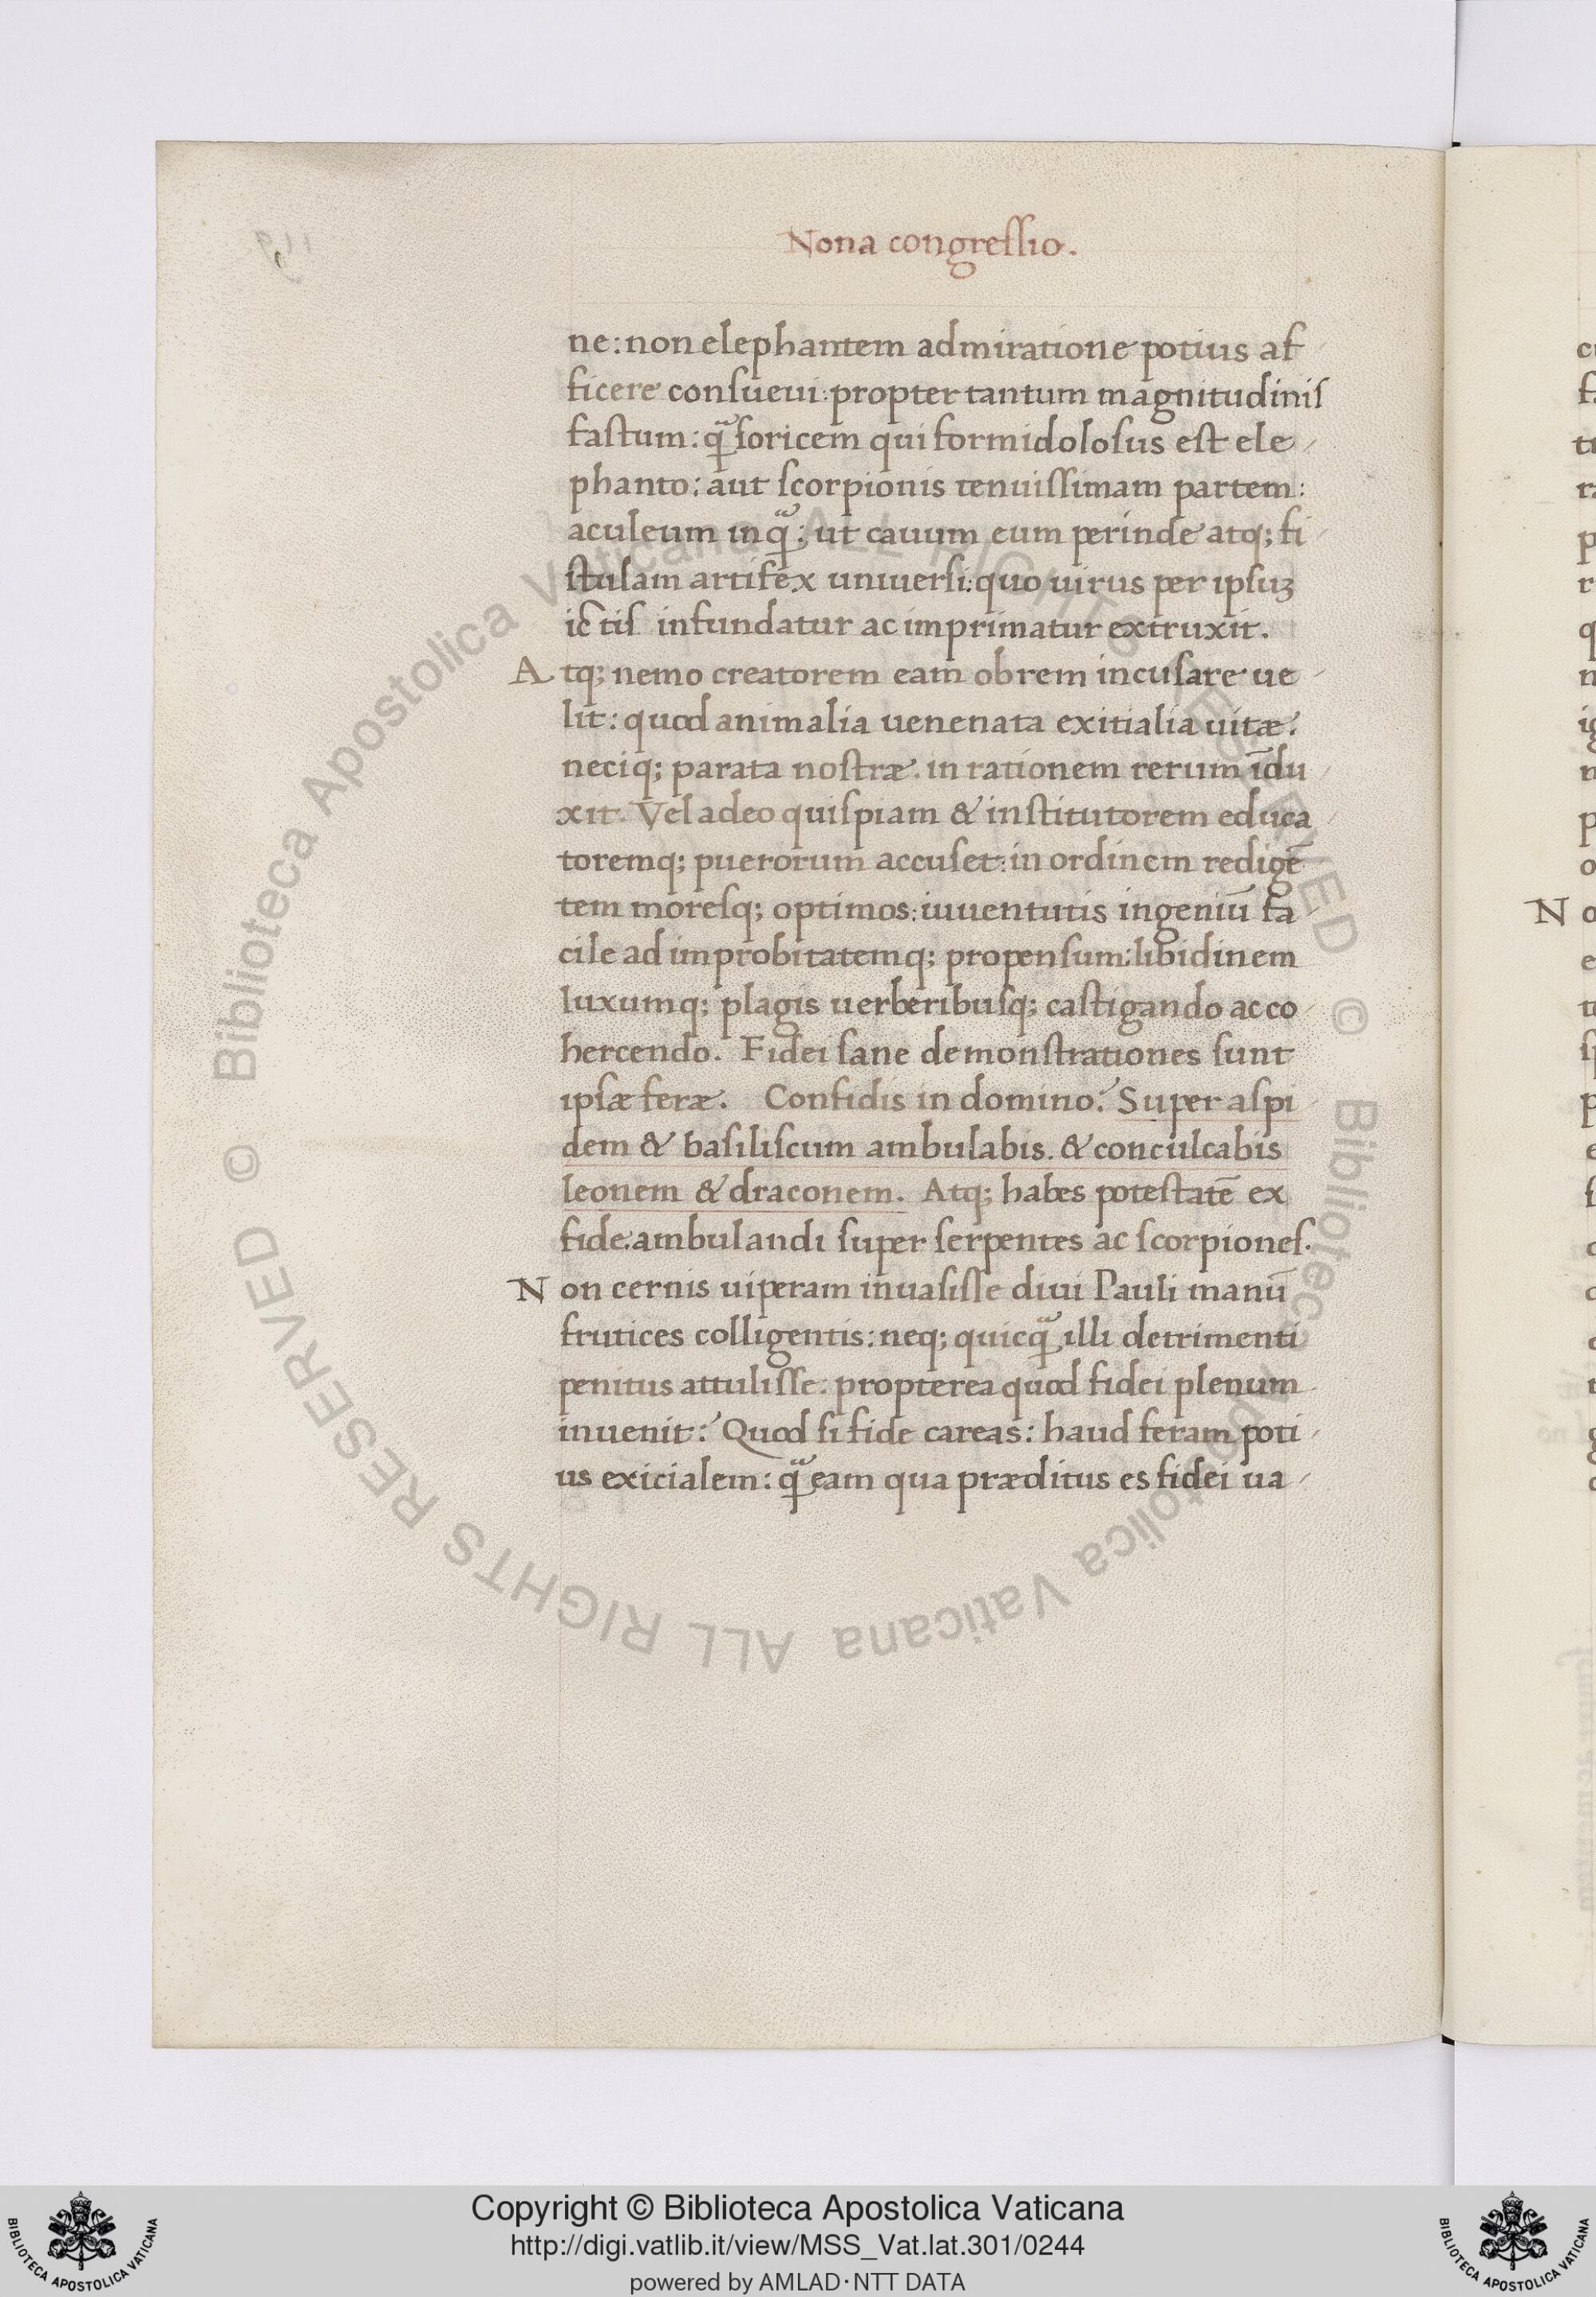 Nona congreſſio.
ne: non elephantem admiratione potius af
ficere conſueui: propter tantum magnitudiniſ
faſtum: ꝙ̃ ſoricem qui formidoloſus eſt ele
phanto: aut ſcorpionis tenuiſſimam partem:
aculeum inꝙ̃: ut cauum eum perinde atq; fi
ſtulam artifex uniuerſi: quo uirus per ipſuꝫ
ictiſ infundatur ac imprimatur extruxit.
Atq; nemo creatorem eam obrem incuſare ue
lit: quod animalia uenenata exitialia uitæ:
neciq; parata noſtræ. in rationem rerum īdu
xit. Vel adeo quiſpiam & inſtitutorem educa
toremq; puerorum accuſet: in ordinem redigē
tem moreſq; optimos: iuuentutis ingeniū fa
cile ad improbitatemq; propenſum: libidinem
luxumq; plagis uerberibuſq; caſtigando ac co
hercendo. Fidei ſane demonſtrationes ſunt
ipſæ feræ. Confidis in domino? Super aſpi
dem & baſiliſcum ambulabis. & conculcabis
leonem & draconem. Atq; habes poteſtatē ex
fide: ambulandi ſuper ſerpentes ac ſcorpioneſ.
Non cernis uiperam inuaſiſſe diui Pauli manū
frutices colligentis: neq; quicꝙ̃ illi detrimenti
penitus attuliſſe: propterea quod fidei plenum
inuenit? Quod ſi fide careas: haud feram poti
us exicialem: ꝙ̃ eam qua præditus es fidei ua
Copyright © Biblioteca Apostolica Vaticana
http://digi.vatlib.it/view/MSS_Vat.lat.301/0244
powered by AMLAD·NTT DATA
BIBLIOTECA APOSTOLICA VATICANA
BIBLIOTECA APOSTOLICA VATICANA
© Biblioteca Apostolica Vaticana ALL RIGHTS RESERVED
© Biblioteca Apostolica Vaticana ALL RIGHTS RESERVED